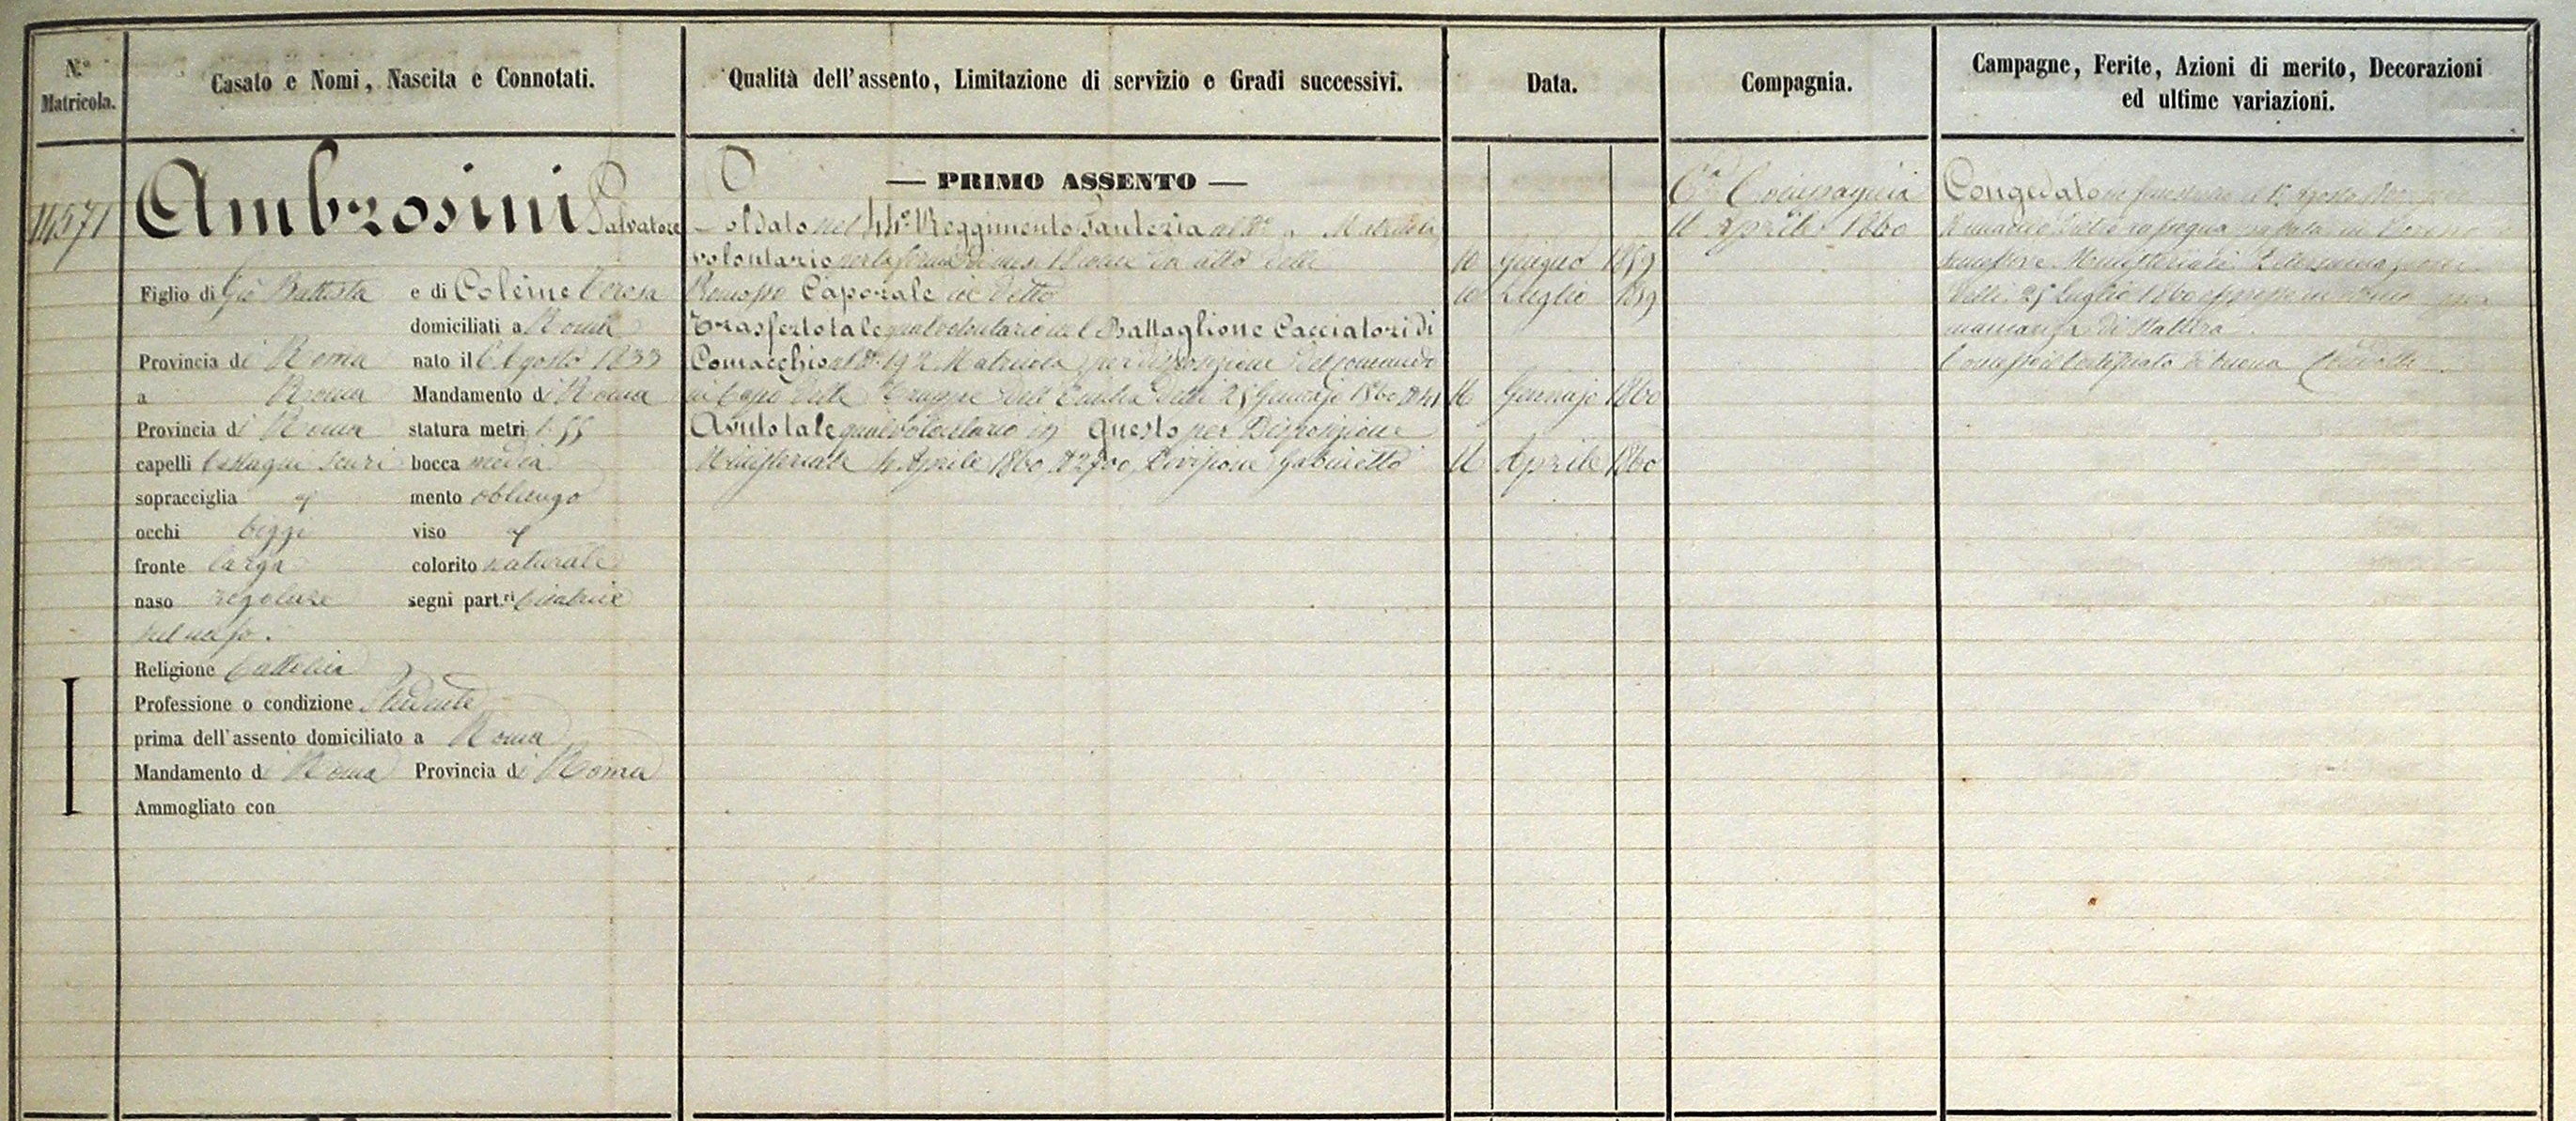 N.º Matricola.
Casato e Nomi, Nascita e Connotati.
Qualità dell'assento, Limitazione di servizio e Gradi successivi.
Data.
Compagnia.
Campagne, Ferite, Azioni di merito, Decorazioni
ed ultime variazioni.
14571
Ambrosini Salvatore
Figlio di Gio Battista e di Coleine Teresa
domiciliati a Roma
Provincia di Roma nato il 6 Agosto 1833
a Roma Mandamento di Roma
Provincia di Roma statura metri 1.55
capelli Castagni scuri bocca media
sopracciglia mento oblungo
occhi biggi viso
fronte larga colorito naturale
naso regolare segni part.ri Cicatrice
nel naso.
Religione Cattolica
Professione o condizione Studente
prima dell'assento domiciliato a Roma
Mandamento di Roma Provincia di Roma
Ammogliato con
— PRIMO ASSENTO —
Soldato nel 44º Reggimento Fanteria al Nº Matricola
volontario per la ferma di mesi 18 come da atto delli 10 Giugno 1859
Promosso Caporale in detto 10 Luglio 1859
Trasferto tale qual volontario nel Battaglione Cacciatori di
Comacchio al Nº 192 Matricola per disposizione del Comando
in Capo delle Truppe dell'Emilia delli 25 Gennajo 1860 16 Gennajo 1860
Avuto tale qual volontario in Questo per Disposizione
Ministeriale 4 Aprile 1860 Nº 2700, Divisione Gabinetto 16 Aprile 1860
6ª Compagnia
16 Aprile 1860
Congedato in Agosto
Ministeriale
delli 25 Luglio 1860
mancanza di statura.
Concesso il Certificato di buona Condotta